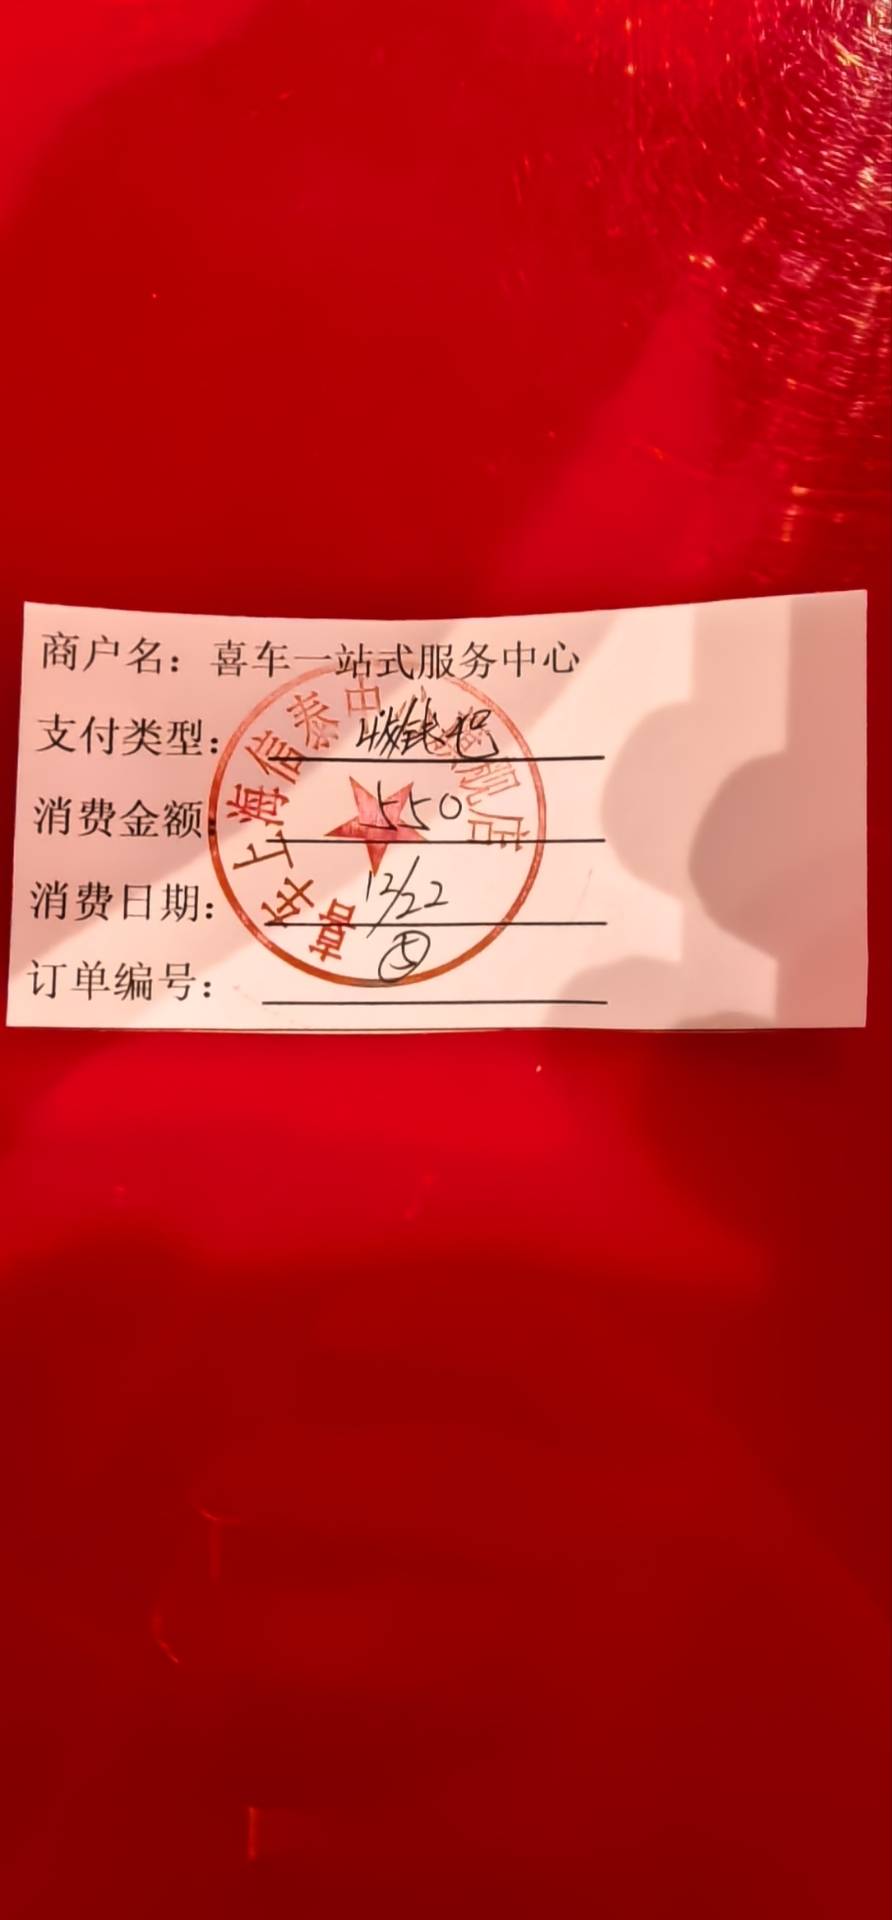 商户名：喜车一站式服务中心
支付类型：收钱吧
消费金额：550
消费日期：12/22
订单编号：⑤
喜车上海信泰中心旗舰店